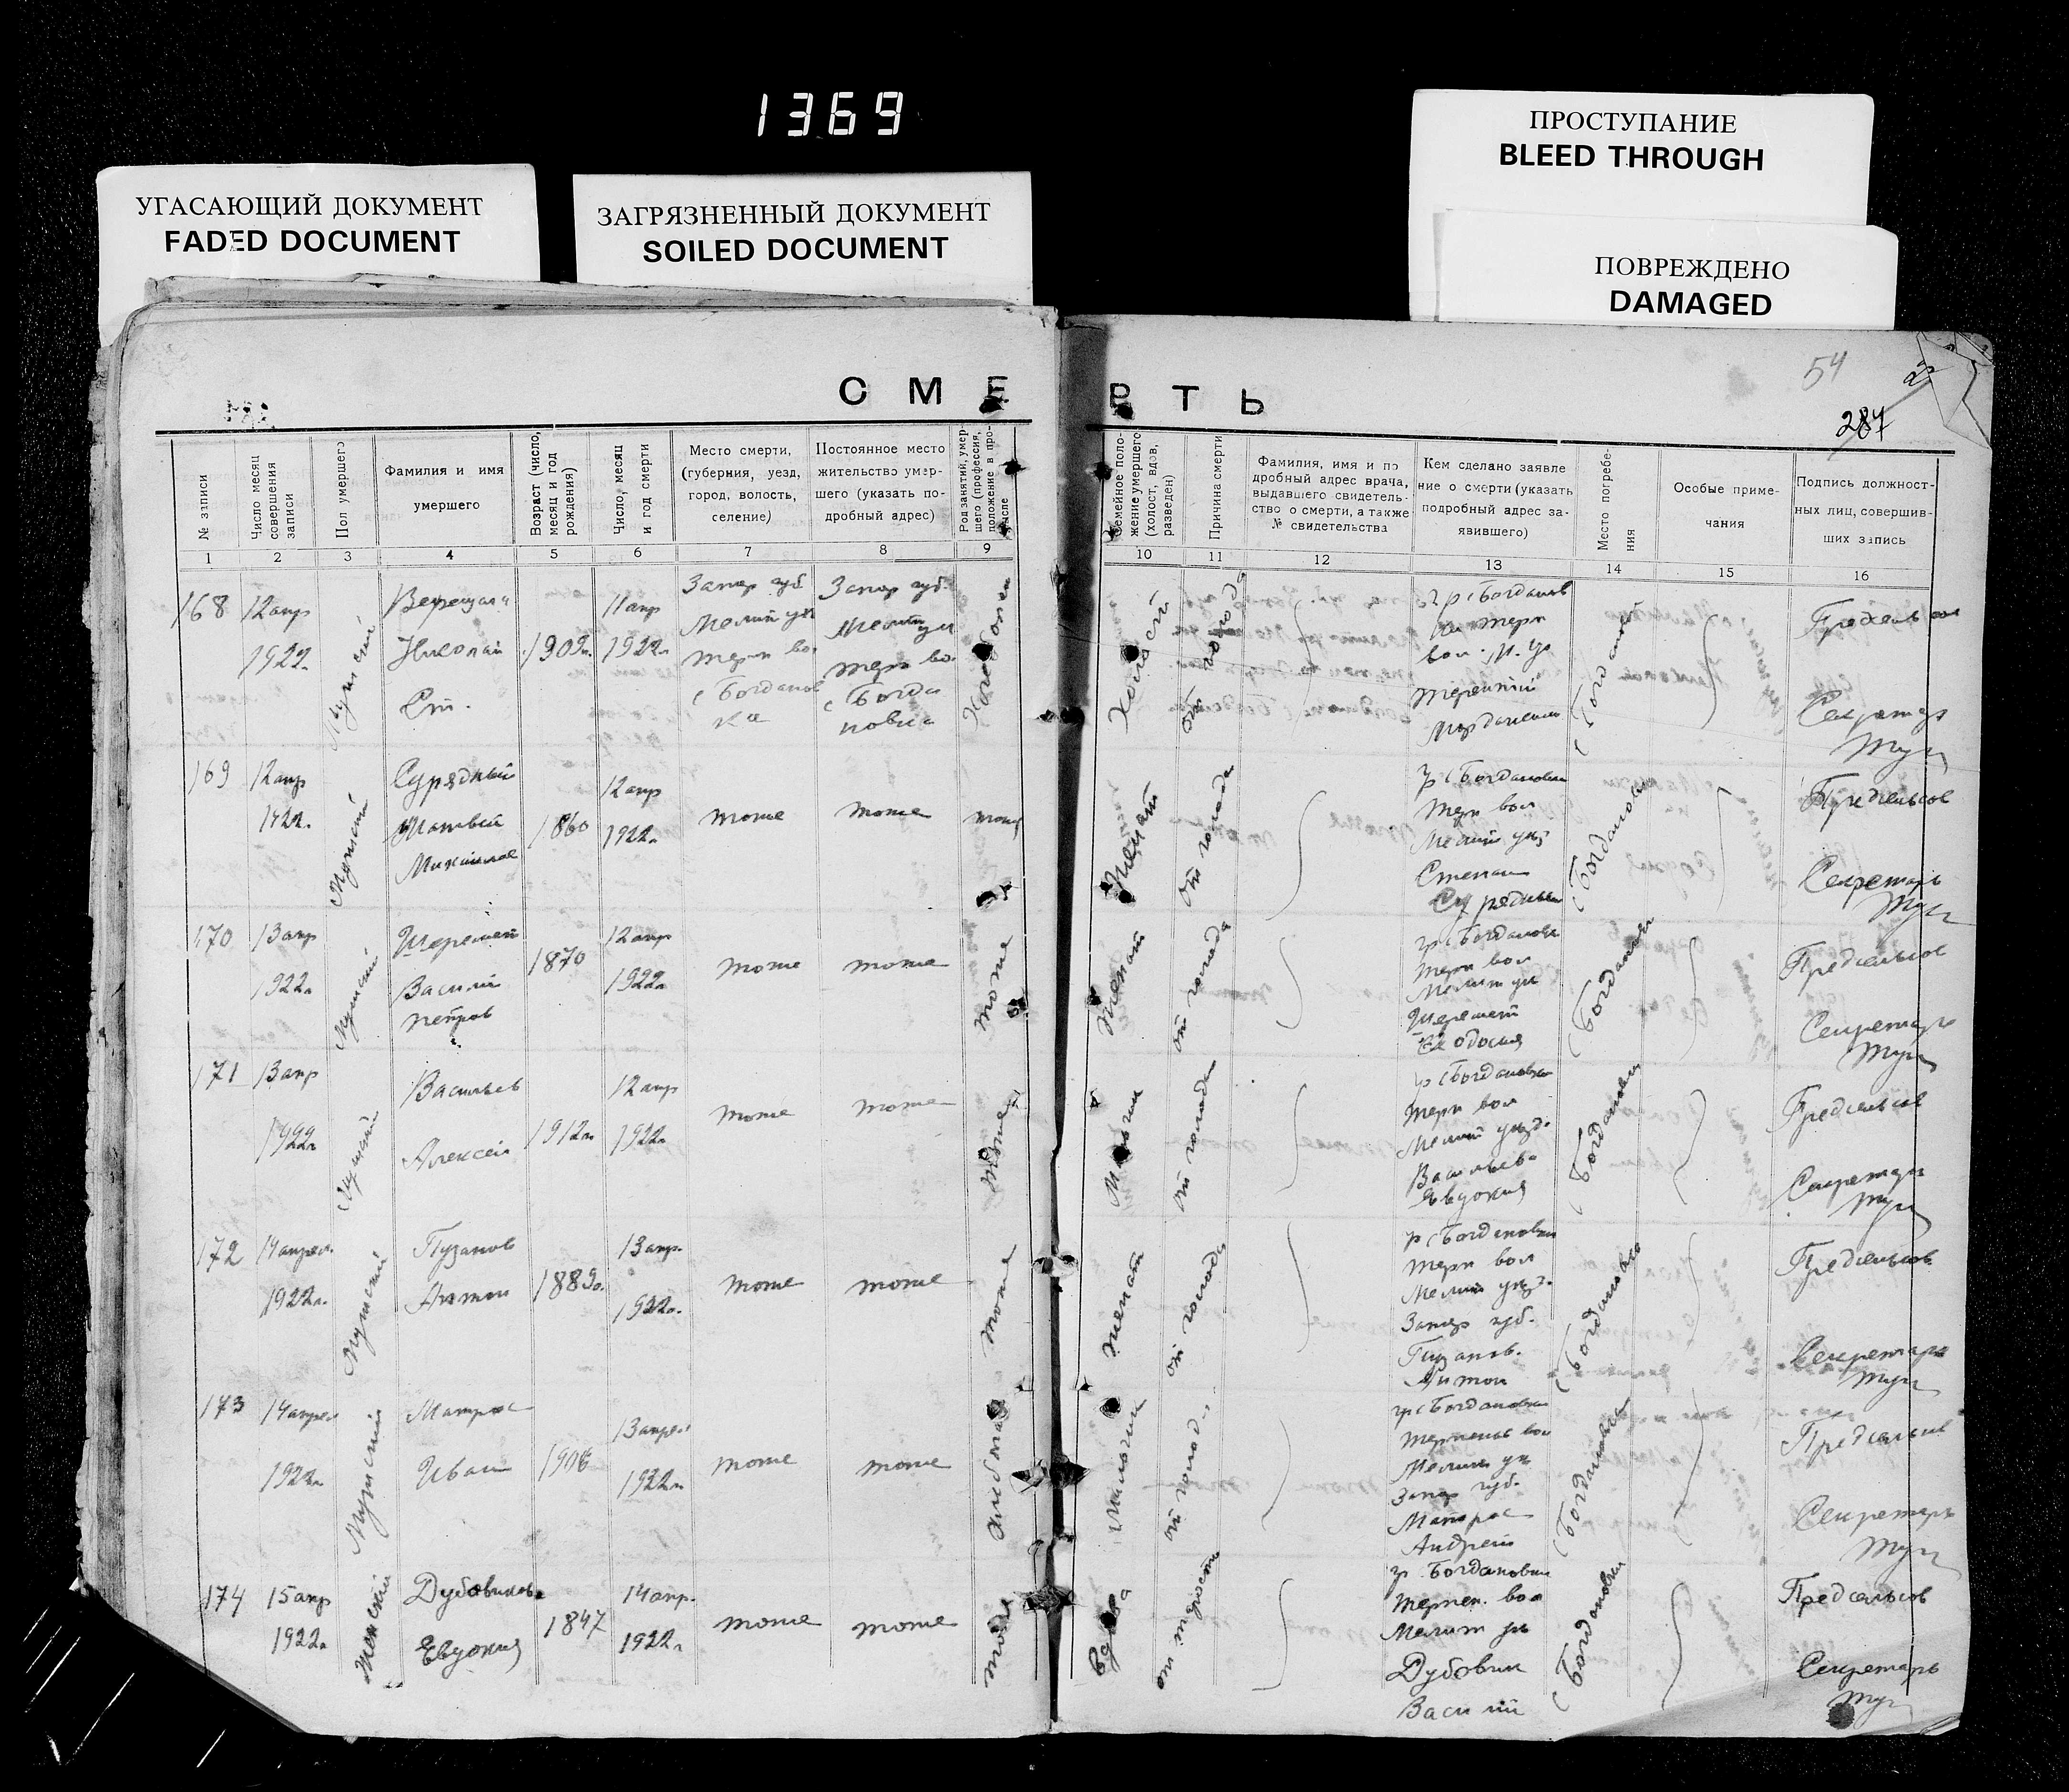 1369
ПРОСТУПАНИЕ
BLEED THROUGH
УГАСАЮЩИЙ ДОКУМЕНТ
FADED DOCUMENT
ЗАГРЯЗНЕННЫЙ ДОКУМЕНТ
SOILED DOCUMENT
ПОВРЕЖДЕНО
DAMAGED
54
287
СМЕРТЬ
№ записи
Число месяц
совершения
записи
Пол умершего
Фамилия и имя
умершего
Возраст (число,
месяц и год
рождения)
Число, месяц
и год смерти
Место смерти,
(губерния, уезд,
город, волость,
селение)
Постоянное место
жительство умер-
шего (указать по-
дробный адрес)
Род занятий, умер-
шего (профессия,
положение в про-
мысле
Семейное поло-
жение умершего
(холост, вдов,
разведен)
Причина смерти
Фамилия, имя и по
дробный адрес врача,
выдавшего свидетель-
ство о смерти, а также
№ свидетельства
Кем сделано заявле
ние о смерти (указать
подробный адрес за-
явившего)
Место погребе-
ния
Особые приме-
чания
Подпись должност-
ных лиц, соверши-
ших запись
1 2 3 4 5 6 7 8 9 10 11 12 13 14 15 16
168 12 апр
1922
Мужской
Николай
1909
11 апр
1922
Запор губ
Мелит уез
Терп во
с Богданов
ка
Запор губ
Мелит уез
терп во
с Богда
новка
Хлебопаш
Холостой
от голода
гр с Богданов
ки терп
вол. М. у
Терентий
с Богдановка
Предсельсов
Секретарь
169 12 апр
1922
Мужской
Сурядный
Матвей
Михайлов
1860
12 апр
1922
тоже тоже тоже
Женат
от голода
гр с Богдановки
Терп вол
Мелит уез
Степан
Сурядный
с Богдановки
Предсельсов
Секретарь
170 13 апр
1922
Мужской
Шеремет
Василий
Петров
1870
12 апр
1922
тоже тоже тоже
женат
от голода
гр с Богдановки
Терп вол
Мелит уез
Шеремет
Феодосия
с Богдановки
Предсельсов
Секретарь
171 13 апр
1922
Мужской
Васильев
Алексей
1912
12 апр
1922
тоже тоже тоже
Мальчик
от голода
гр с Богдановки
Терп вол
Мелит уезд
Васильева
Евдокия
с Богдановки
Предсельсов
Секретарь
172 14 апрел
1922
Мужской
Пузанов
Антон
1889
13 апр
1922
тоже тоже тоже
женат
от голода
гр с Богдановки
Терп вол
Мелит уез
Запор губ
Пузанов
Антон
с Богдановка
Предсельсов
Секретарь
173 14 апрел
1922
Мужской
Матрос
Иван
1908
13 апрел
1922
тоже тоже
Хлебопаш
Мальчик
от голода
гр с Богдановки
Терпеньев вол
Мелит уез
Запор губ
Матрос
Андрей
с Богдановка
Предсельсов
Секретарь
174 15 апр
1922
Женский
Дубовикова
Евдокия
1847
14 апр
1922
тоже тоже тоже
вдова
от старости
гр Богдановки
Терпен. вол
Мелит уез
Дубовик
Василий
с Богдановки
Предсельсов
Секретарь